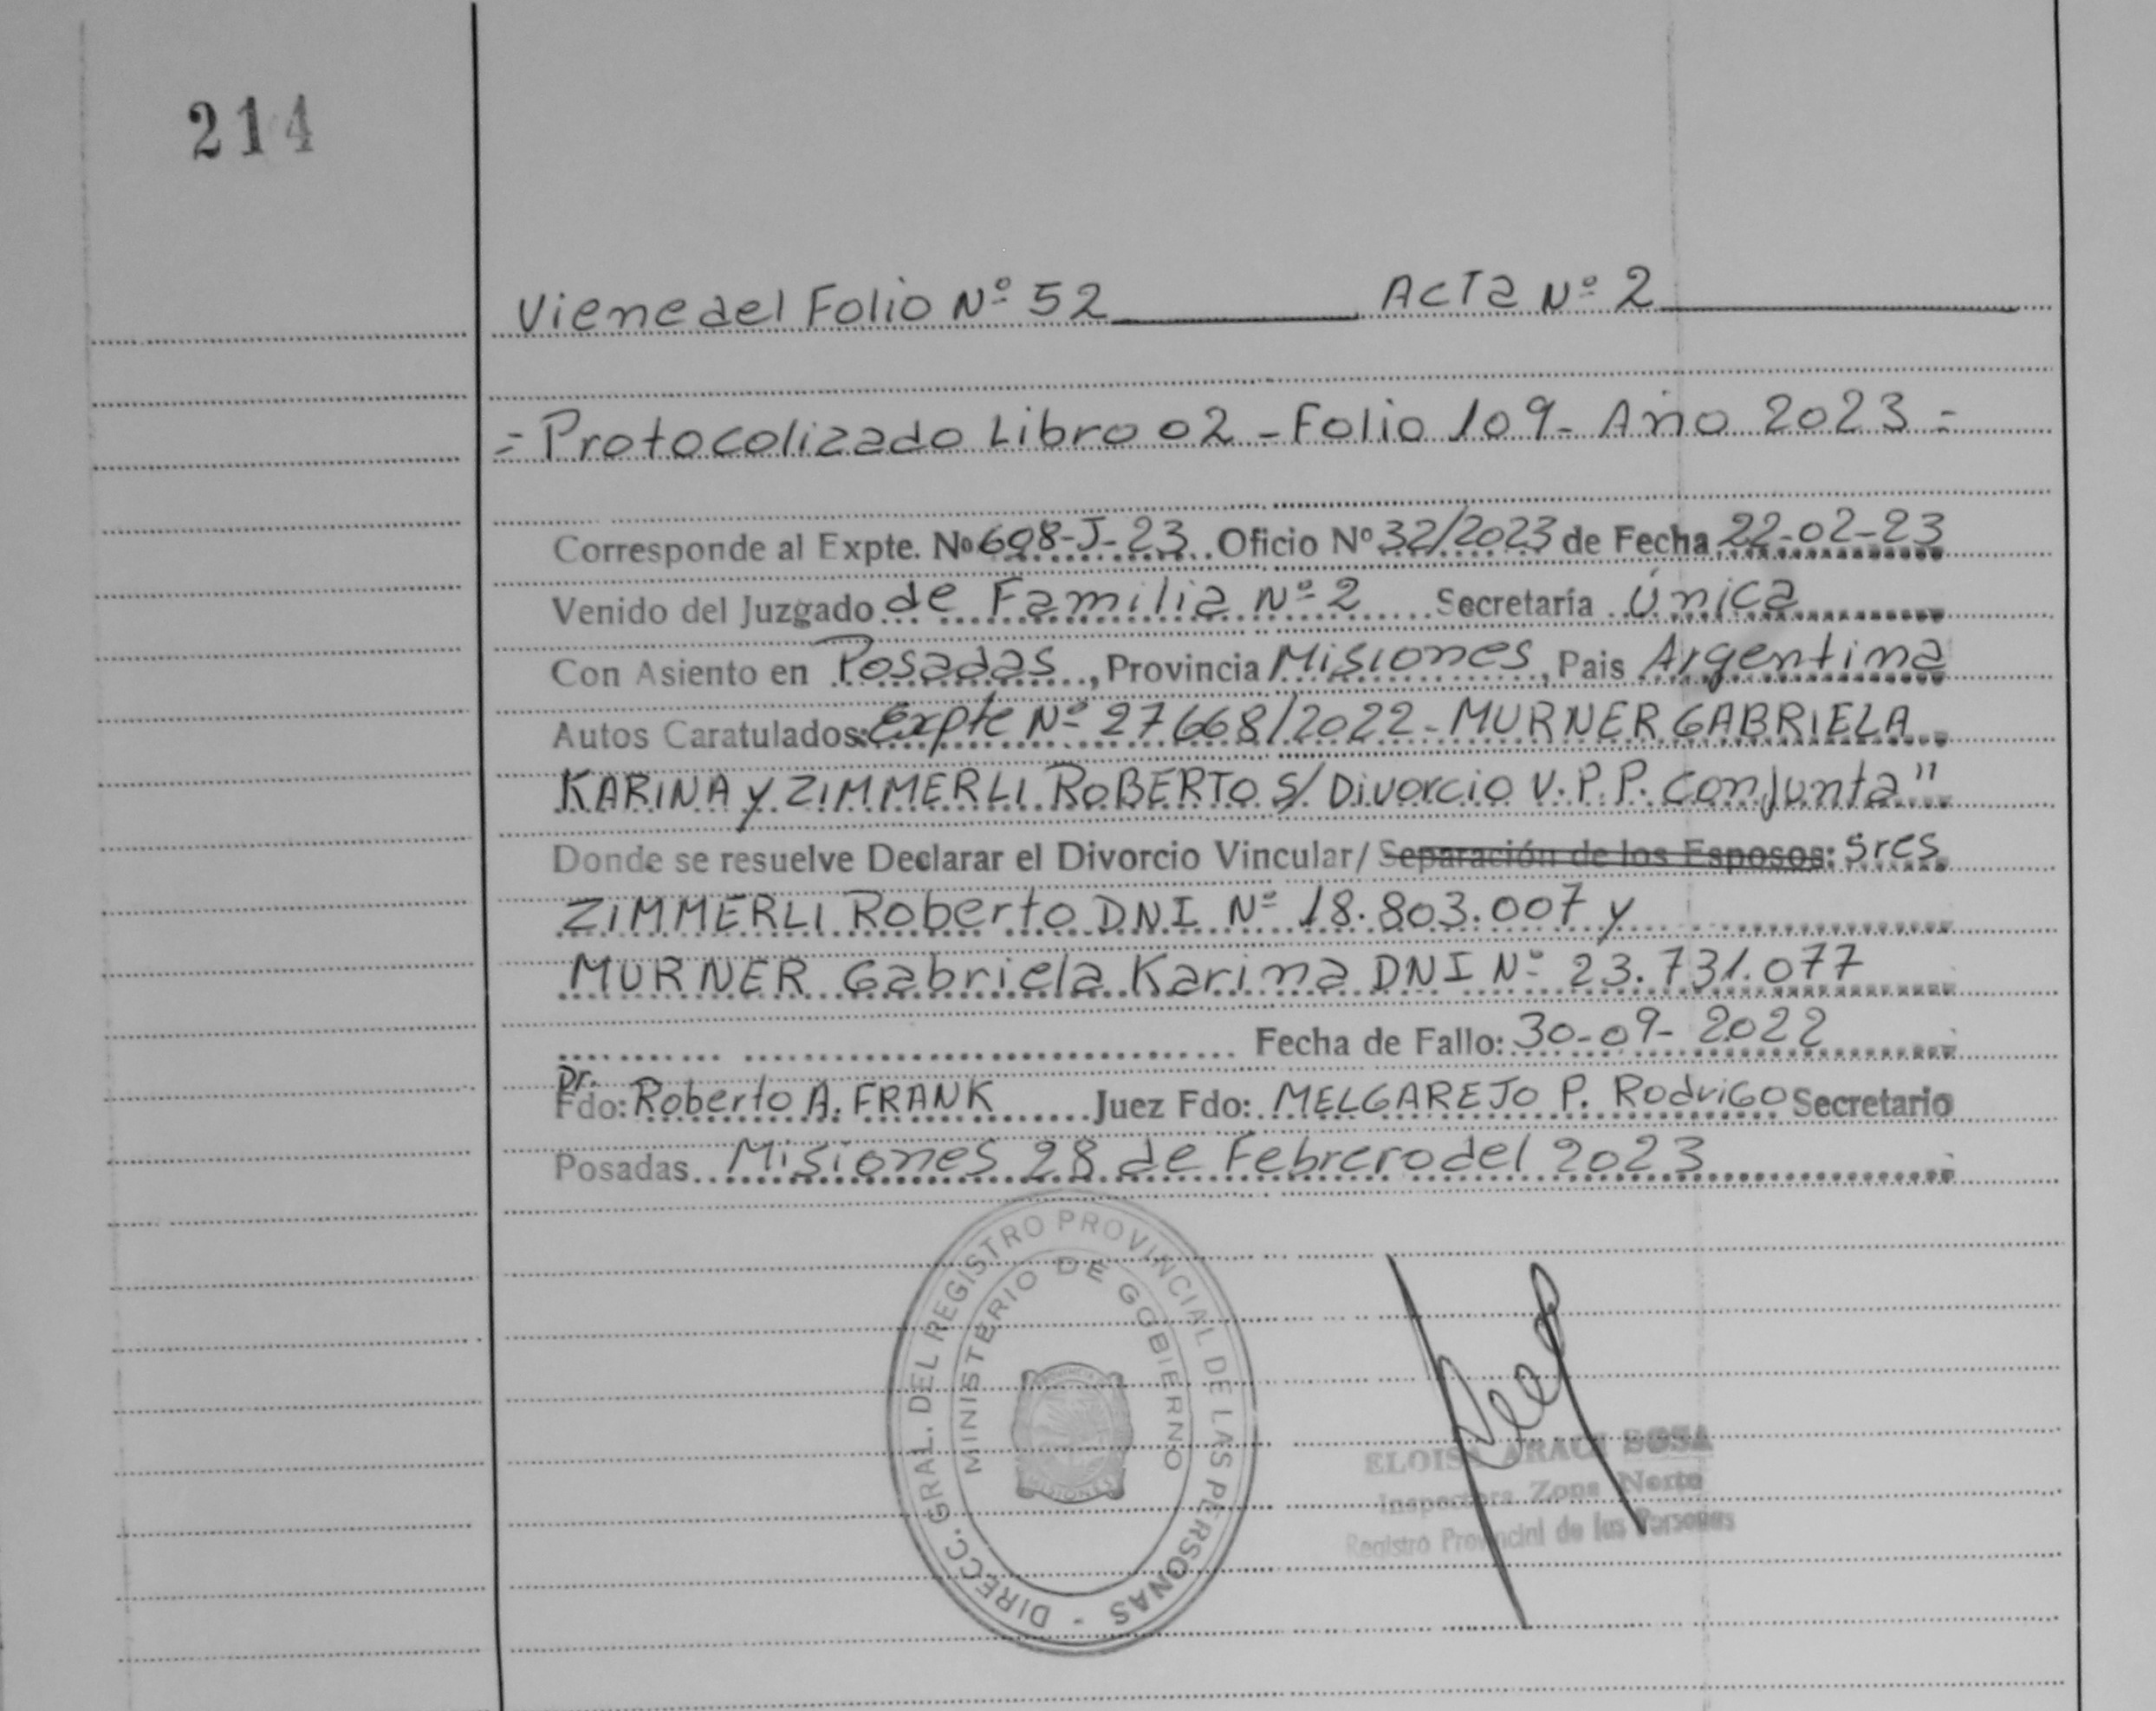 214
Viene del Folio Nº 52 ACTA Nº 2
= Protocolizado Libro 02 - Folio 109 - Año 2023 =
Corresponde al Expte. Nº 608-J-23 Oficio Nº 32/2023 de Fecha 22-02-23
Venido del Juzgado de Familia Nº 2 Secretaría Única
Con Asiento en Posadas, Provincia Misiones, Pais Argentina
Autos Caratulados: Expte Nº 27668/2022 - MURNER GABRIELA
KARINA y ZIMMERLI ROBERTO S/ Divorcio V.P.P. Conjunta"
Donde se resuelve Declarar el Divorcio Vincular/ Separación de los Esposos: Sres
ZIMMERLI Roberto DNI Nº 18.803.007 y
MURNER Gabriela Karina DNI Nº 23.731.077
Fecha de Fallo: 30-09-2022
Dr.
Fdo: Roberto A. FRANK Juez Fdo: MELGAREJO P. RodriGO Secretario
Posadas Misiones 28 de Febrero del 2023
DIRECC. GRAL. DEL REGISTRO PROVINCIAL DE LAS PERSONAS -
MINISTERIO DE GOBIERNO
PROVINCIA
MISIONES
ELOISA ARACI SOSA
Inspectora Zona Norte
Registro Provincial de las Personas